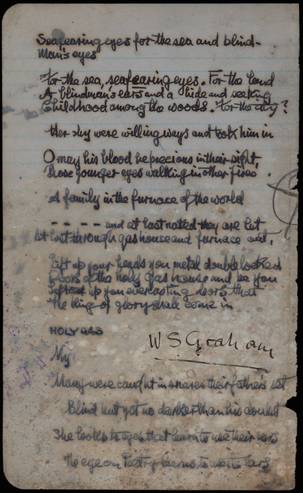 Seafaring eyes for the sea and blind-
man's eyes
For the sea, seafaring eyes. For the land
A blindman's ears and a hide and seeking
Childhood among the woods. For the city?
Her sky were willing ways and took him in
O may his blood be precious in their sight,
Those younger eyes walking in other fires
A family in the furnace of the world
- - - - and at last nailed they are let
let last through gashouse and furnace and,
Lift up your heads you metal double locked
Doors of the holy gas house and be you
lifted up you everlasting doors that
the king of glory shall come in
HOLY GAS
W S Graham
My
Many were caught in snares their fathers set
Blind but yet no darker than his
She looks to eyes that learn to use their
The eye on Poetry learns to use its ears